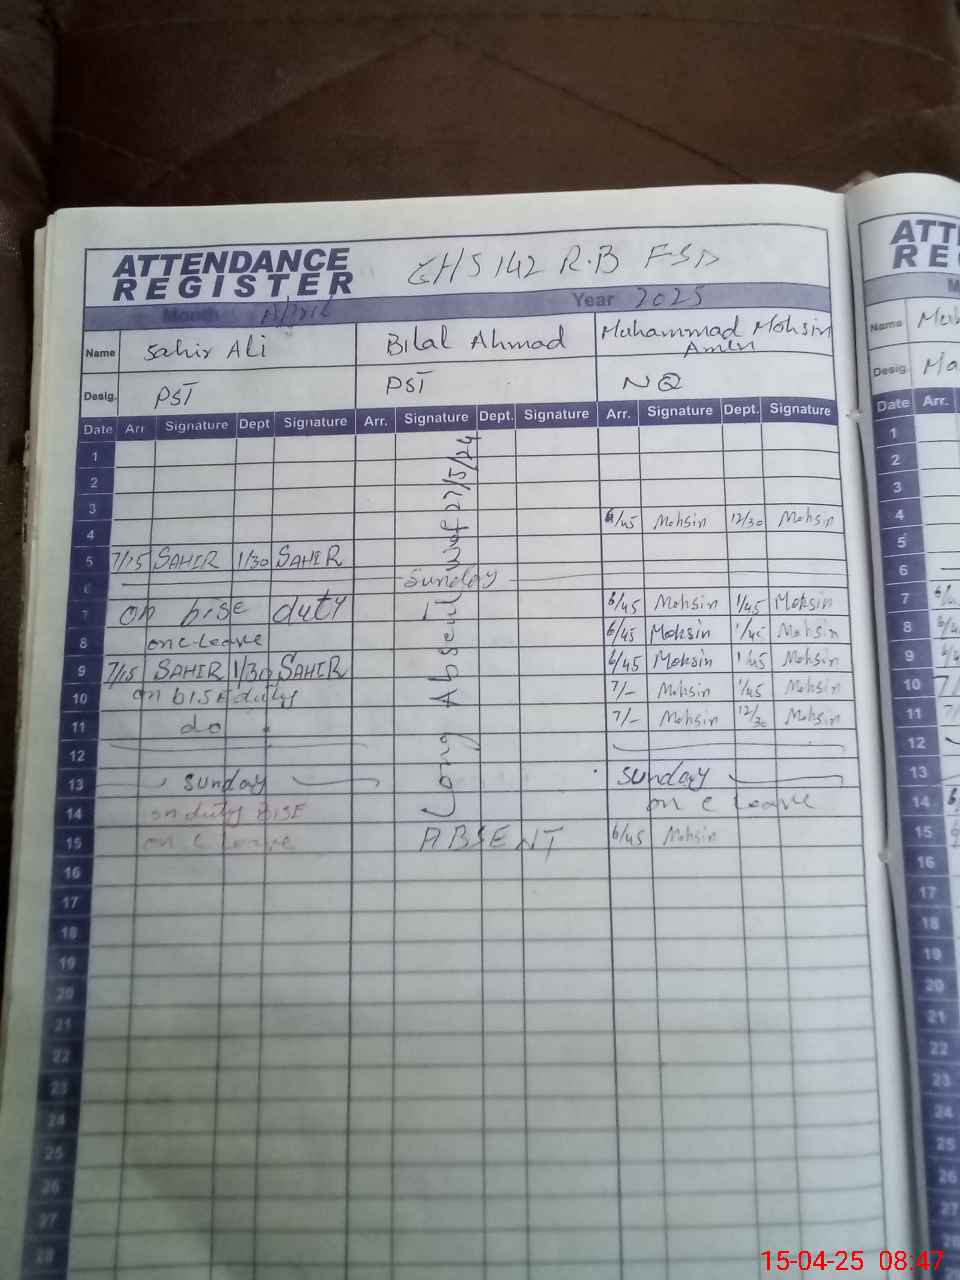 ATTENDANCE REGISTER GHS 142 R.B FSD
Month April Year 2025
Name Sahir Ali Bilal Ahmad Muhammad Mohsin Amin
Desig. PST PST NQ
Date Arr Signature Dept Signature Arr. Signature Dept. Signature Arr. Signature Dept. Signature
1
2
3
4 6/45 Mohsin 12/30 Mohsin
5 7/15 SAHIR 1/30 SAHIR
6 Sunday
7 on bise duty 6/45 Mohsin 1/45 Mohsin
8 one-leave 6/45 Mohsin 1/45 Mohsin
9 7/15 SAHIR 1/30 SAHIR 6/45 Mohsin 1/45 Mohsin
10 on BISE duty 7/- Mohsin 1/45 Mohsin
11 do 7/- Mohsin 12/30 Mohsin
12
13 Sunday Sunday
14 on duty BISE on c leave
15 on c leave ABSENT 6/45 Mohsin
Long Absent wef 27/5/24
16
17
18
19
20
21
22
23
24
25
26
27
28
ATT
RE
M
Name
Desig. Ma
Date Arr.
1
2
3
4
5
6
7
8
9
10 7/
11 7/
12
13
14
15
16
17
18
19
20
21
22
23
24
25
26
27
28
15-04-25 08:47